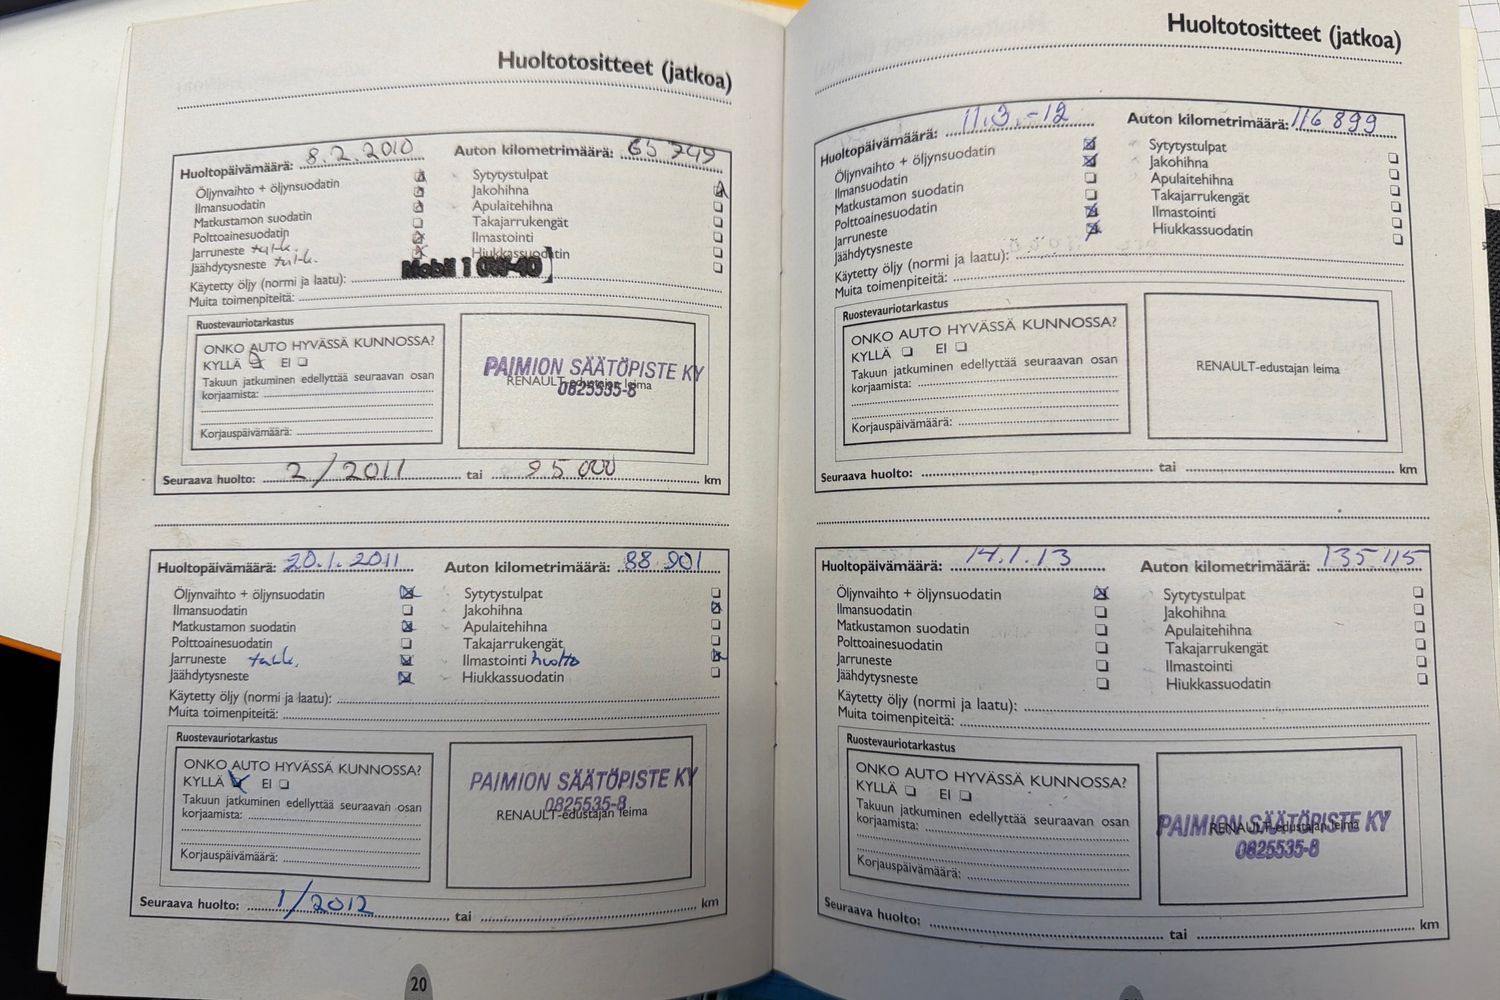 Huoltotositteet (jatkoa)
Huoltopäivämäärä: 8.2.2010 Auton kilometrimäärä: 65 749
Öljynvaihto + öljynsuodatin Sytytystulpat
Ilmansuodatin Jakohihna
Matkustamon suodatin Apulaitehihna
Polttoainesuodatin Takajarrukengät
Jarruneste tark. Ilmastointi
Jäähdytysneste tark. Hiukkassuodatin
Käytetty öljy (normi ja laatu): Mobil 1 0W-40
Muita toimenpiteitä:
Ruostevauriotarkastus
ONKO AUTO HYVÄSSÄ KUNNOSSA?
KYLLÄ EI
Takuun jatkuminen edellyttää seuraavan osan
korjaamista:
Korjauspäivämäärä:
PAIMION SÄÄTÖPISTE KY
RENAULT-edustajan leima
0825535-8
Seuraava huolto: 2/2011 tai 95 000 km
Huoltopäivämäärä: 20.1.2011 Auton kilometrimäärä: 88 901
Öljynvaihto + öljynsuodatin Sytytystulpat
Ilmansuodatin Jakohihna
Matkustamon suodatin Apulaitehihna
Polttoainesuodatin Takajarrukengät
Jarruneste tark. Ilmastointi huolto
Jäähdytysneste Hiukkassuodatin
Käytetty öljy (normi ja laatu):
Muita toimenpiteitä:
Ruostevauriotarkastus
ONKO AUTO HYVÄSSÄ KUNNOSSA?
KYLLÄ EI
Takuun jatkuminen edellyttää seuraavan osan
korjaamista:
Korjauspäivämäärä:
PAIMION SÄÄTÖPISTE KY
0825535-8
RENAULT-edustajan leima
Seuraava huolto: 1/2012 tai km
20
Huoltotositteet (jatkoa)
Huoltopäivämäärä: 11.3.-12 Auton kilometrimäärä: 116 899
Öljynvaihto + öljynsuodatin Sytytystulpat
Ilmansuodatin Jakohihna
Matkustamon suodatin Apulaitehihna
Polttoainesuodatin Takajarrukengät
Jarruneste Ilmastointi
Jäähdytysneste Hiukkassuodatin
Käytetty öljy (normi ja laatu):
Muita toimenpiteitä:
Ruostevauriotarkastus
ONKO AUTO HYVÄSSÄ KUNNOSSA?
KYLLÄ EI
Takuun jatkuminen edellyttää seuraavan osan
korjaamista:
Korjauspäivämäärä:
RENAULT-edustajan leima
Seuraava huolto: tai km
Huoltopäivämäärä: 14.1.13 Auton kilometrimäärä: 135 115
Öljynvaihto + öljynsuodatin Sytytystulpat
Ilmansuodatin Jakohihna
Matkustamon suodatin Apulaitehihna
Polttoainesuodatin Takajarrukengät
Jarruneste Ilmastointi
Jäähdytysneste Hiukkassuodatin
Käytetty öljy (normi ja laatu):
Muita toimenpiteitä:
Ruostevauriotarkastus
ONKO AUTO HYVÄSSÄ KUNNOSSA?
KYLLÄ EI
Takuun jatkuminen edellyttää seuraavan osan
korjaamista:
Korjauspäivämäärä:
PAIMION SÄÄTÖPISTE KY
RENAULT-edustajan leima
0825535-8
Seuraava huolto: tai km